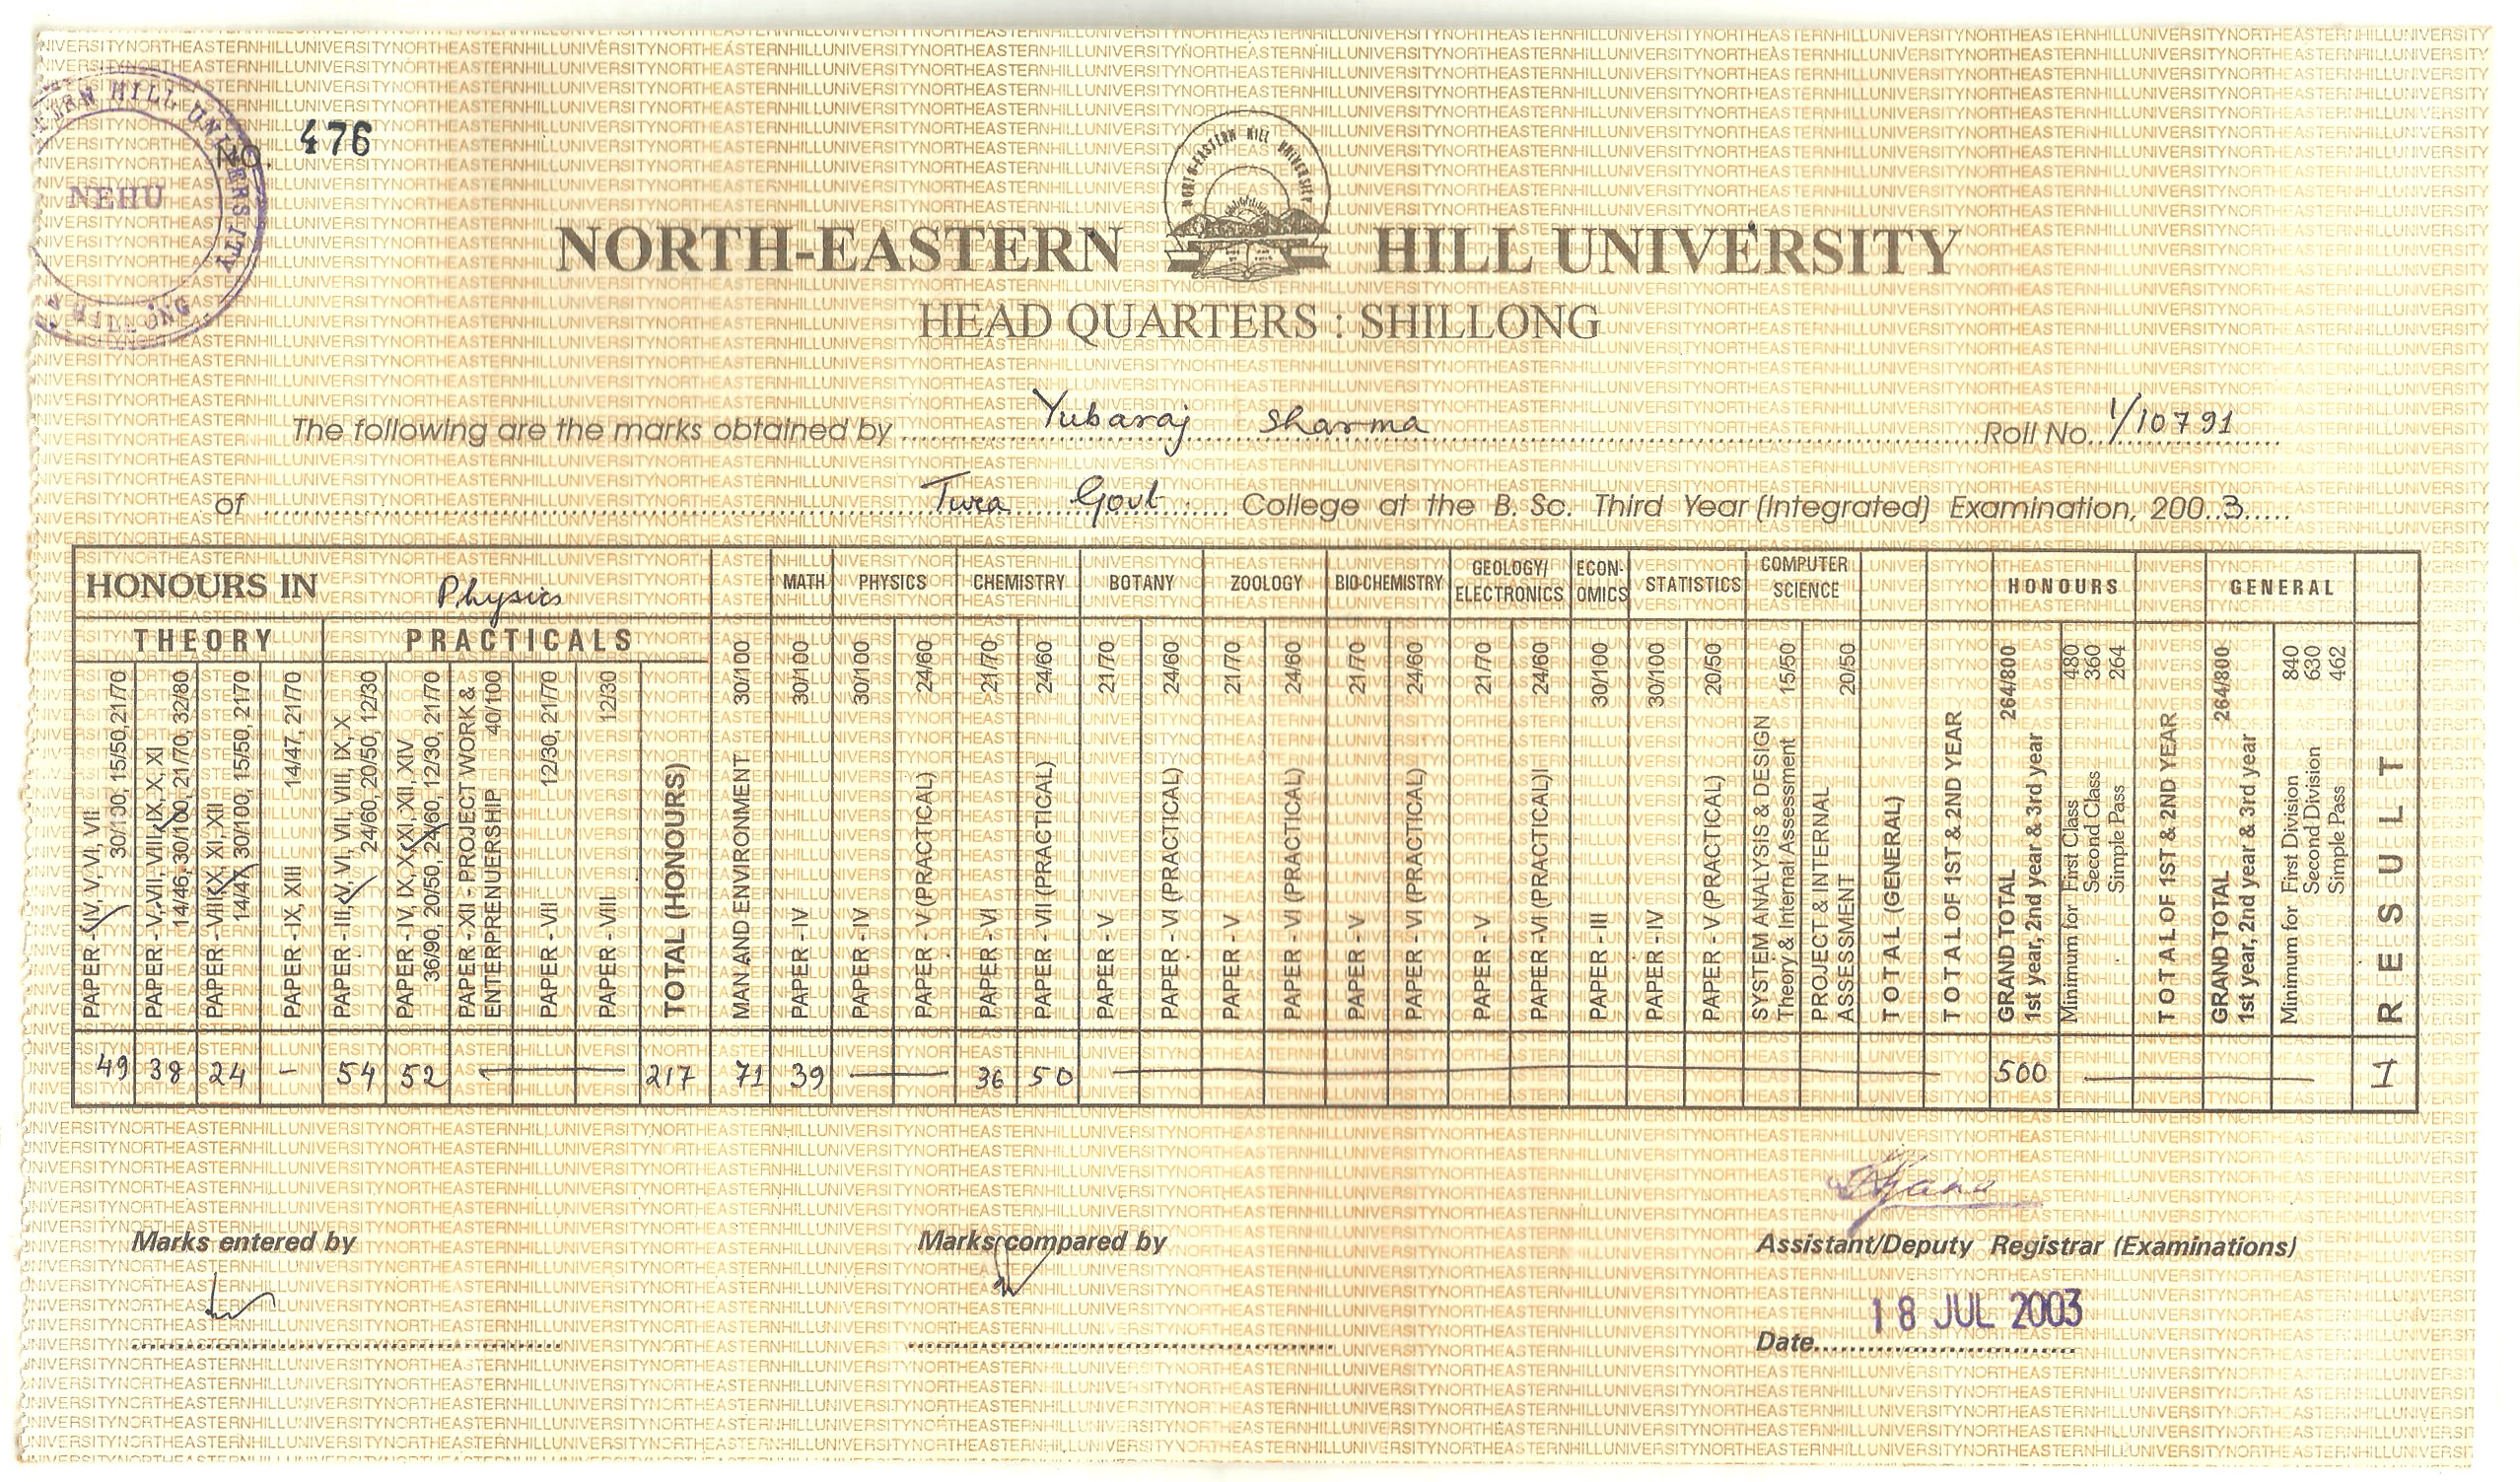 NORTH EASTERN HILL UNIVERSITY
NEHU
SHILLONG
NO. 476
NORTH-EASTERN HILL UNIVERSITY
NORTH-EASTERN HILL UNIVERSITY
HEAD QUARTERS : SHILLONG
The following are the marks obtained by Yubaraj Sharma Roll No. 1/10791
of Tura Govt. College at the B. Sc. Third Year (Integrated) Examination, 2003
HONOURS IN Physics
MATH PHYSICS CHEMISTRY BOTANY ZOOLOGY BIO-CHEMISTRY GEOLOGY/ ELECTRONICS ECON-OMICS STATISTICS COMPUTER SCIENCE HONOURS GENERAL
THEORY PRACTICALS
PAPER - IV, V, VI, VII 30/100, 15/50, 21/70
PAPER - V, VII, VIII, IX, X, XI 14/46, 30/100, 21/70, 32/80
PAPER - VII, IX, XI, XII 14/47, 30/100, 15/50, 21/70
PAPER - IX, XIII 14/47, 21/70
PAPER - III, V, VI, VII, VIII, IX, X 24/60, 20/50, 12/30
PAPER - IV, IX, X, XI, XII, XIV 36/90, 20/50, 24/60, 12/30, 21/70
PAPER - XII - PROJECT WORK & ENTERPRENUERSHIP 40/100
PAPER - VII 12/30, 21/70
PAPER - VIII 12/30
TOTAL (HONOURS)
MAN AND ENVIRONMENT 30/100
PAPER - IV 30/100
PAPER - IV 30/100
PAPER - V (PRACTICAL) 24/60
PAPER - VI 21/70
PAPER - VII (PRACTICAL) 24/60
PAPER - V 21/70
PAPER - VI (PRACTICAL) 24/60
PAPER - V 21/70
PAPER - VI (PRACTICAL) 24/60
PAPER - V 21/70
PAPER - VI (PRACTICAL) 24/60
PAPER - V 21/70
PAPER - VI (PRACTICAL) 24/60
PAPER - III 30/100
PAPER - IV 30/100
PAPER - V (PRACTICAL) 20/50
SYSTEM ANALYSIS & DESIGN
Theory & Internal Assessment 15/50
PROJECT & INTERNAL ASSESSMENT 20/50
TOTAL (GENERAL)
TOTAL OF 1ST & 2ND YEAR
GRAND TOTAL 264/800
1st year, 2nd year & 3rd year
Minimum for First Class 480
Second Class 360
Simple Pass 264
TOTAL OF 1ST & 2ND YEAR
GRAND TOTAL 264/800
1st year, 2nd year & 3rd year
Minimum for First Division 840
Second Division 630
Simple Pass 462
RESULT
49 38 24 - 54 52 217 71 39 36 50 500 I
Marks entered by
Marks compared by
Assistant/Deputy Registrar (Examinations)
Date 18 JUL 2003